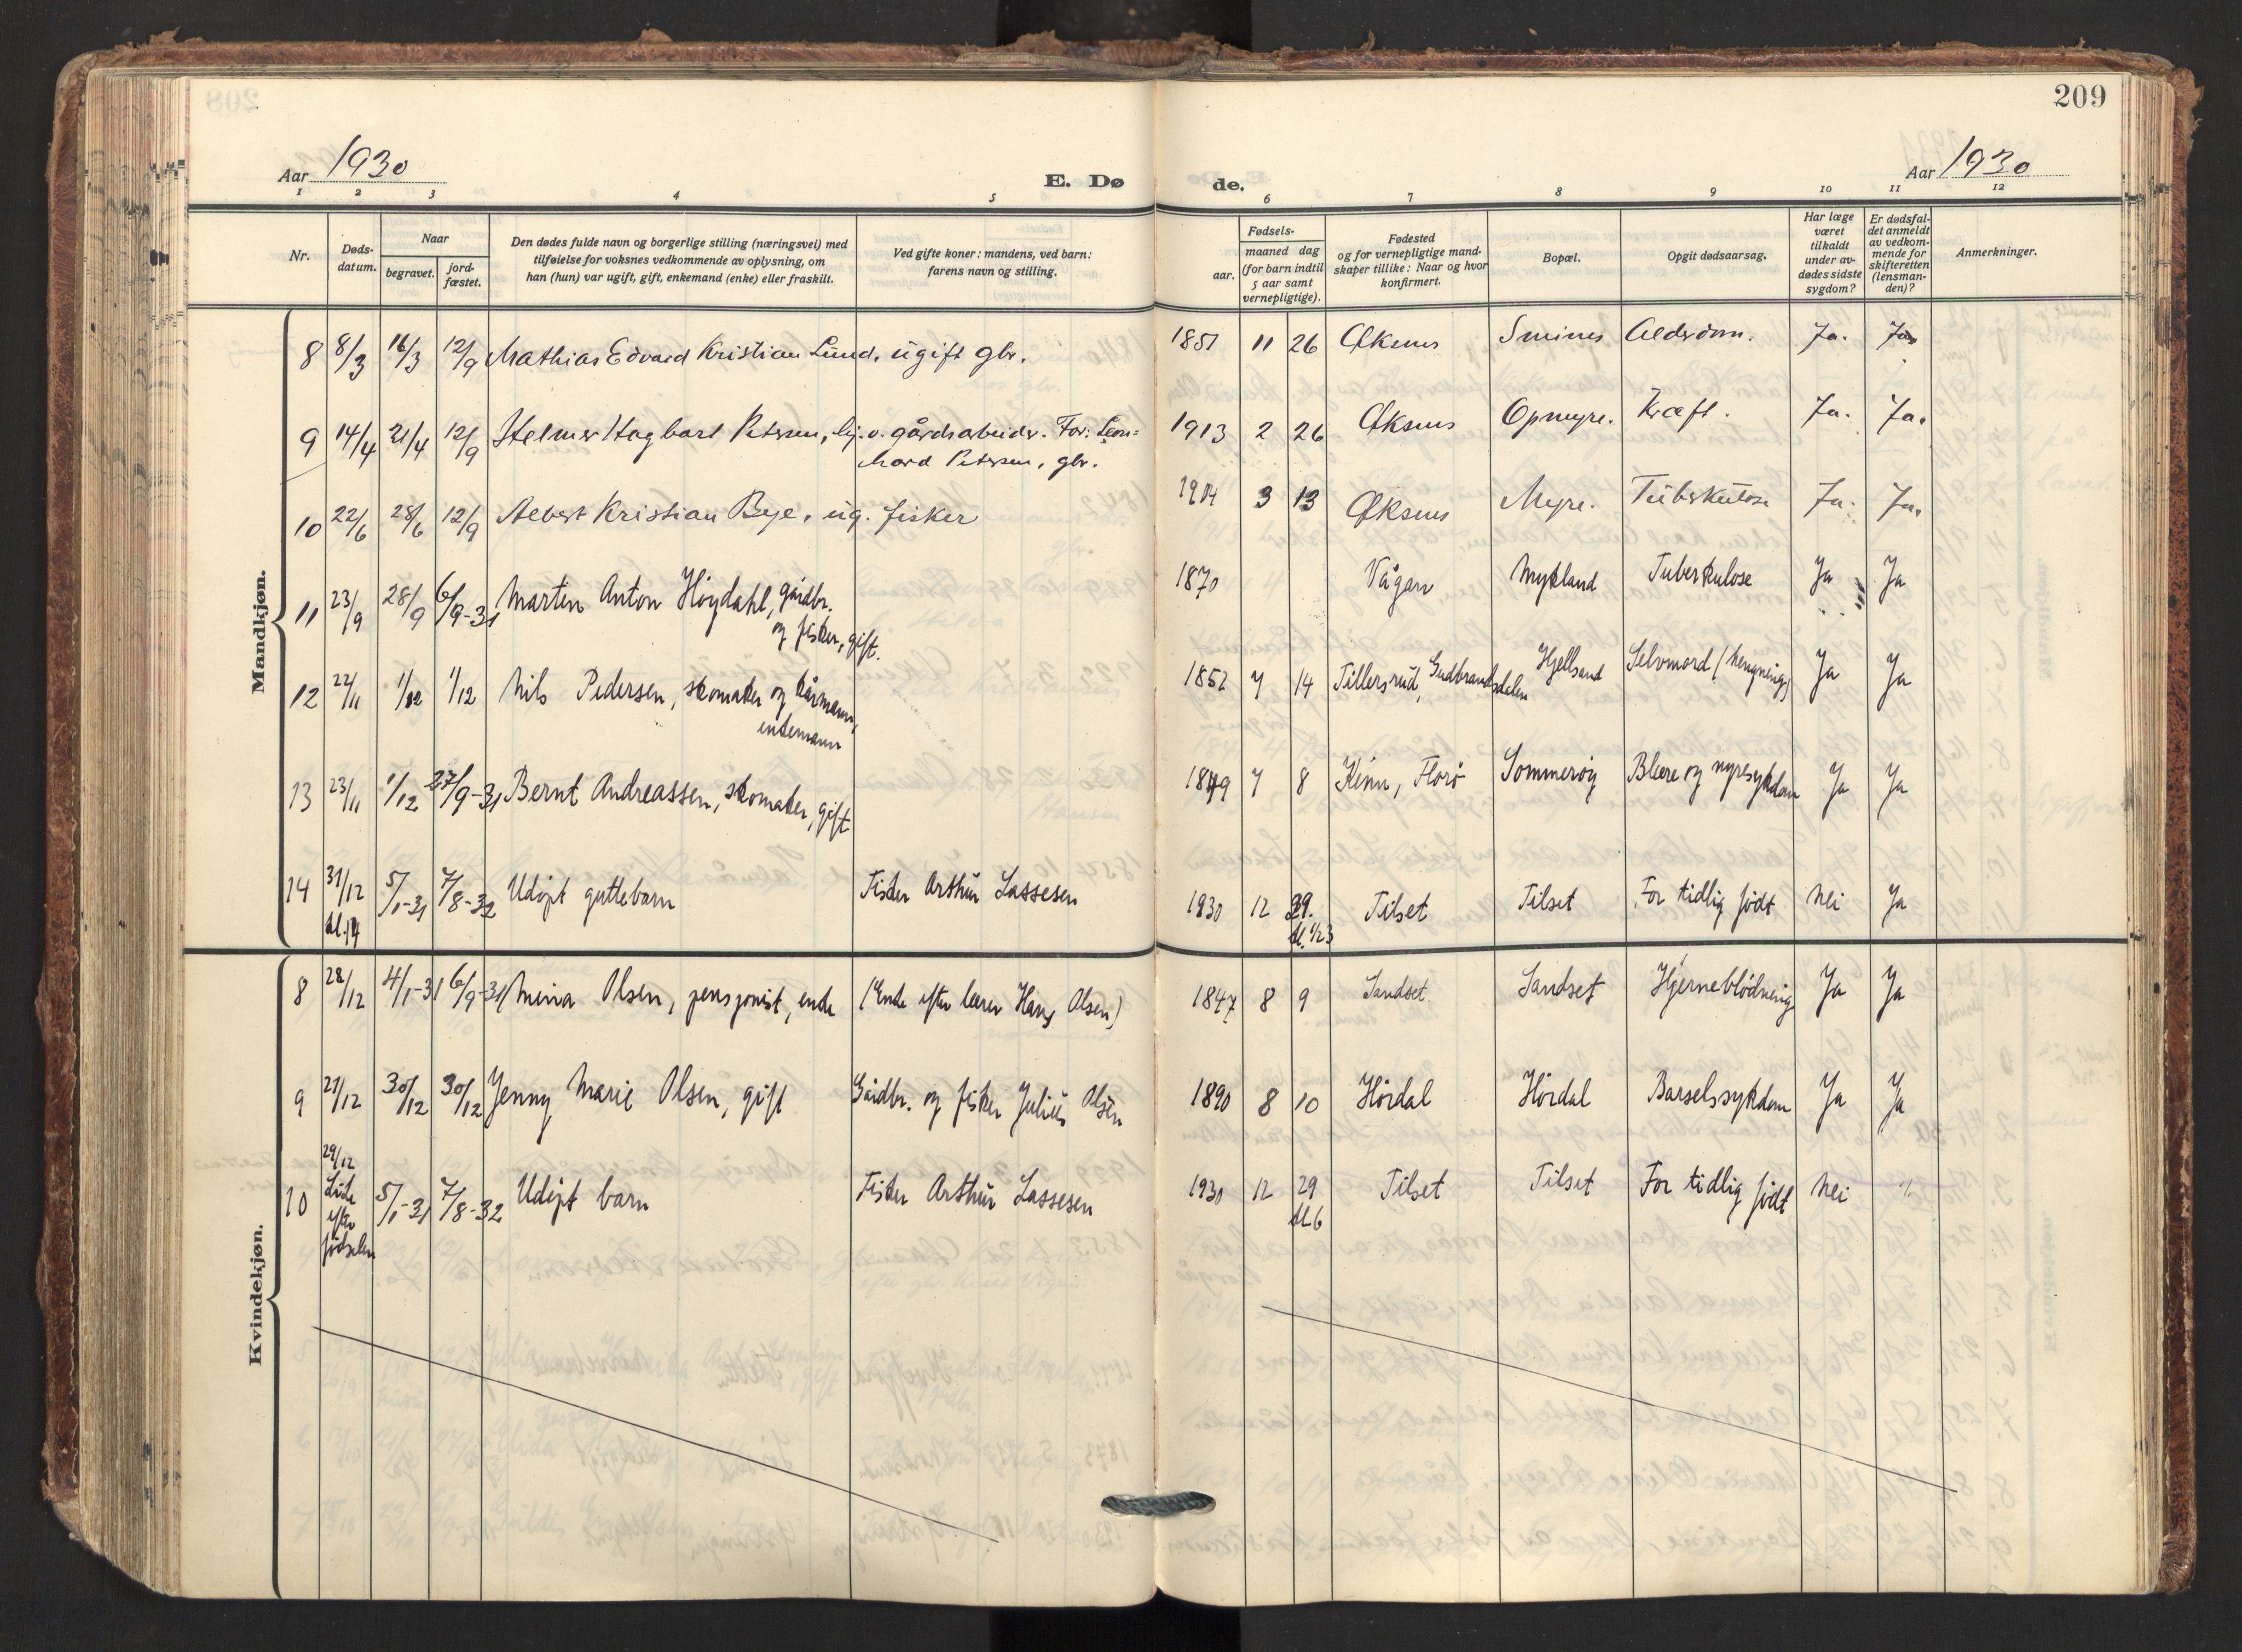 209
Aar 1930
E. Dø
de.
Aar 1930
1 2 3 4 5 6 7 8 9 10 11 12
Nr.
Døds-
datum.
Naar
begravet.
jord-
fæstet.
Den dødes fulde navn og borgerlige stilling (næringsvei) med
tilføielse for voksnes vedkommende av oplysning, om
han (hun) var ugift, gift, enkemand (enke) eller fraskilt.
Ved gifte koner: mandens, ved barn:
farens navn og stilling.
Fødsels-
aar.
maaned dag
(for barn indtil
5 aar samt
vernepligtige).
Fødested
og for vernepligtige mand-
skaper tillike: Naar og hvor
konfirmert.
Bopæl.
Opgit dødsaarsag.
Har læge
været
tilkaldt
under av-
dødes sidste
sygdom?
Er dødsfal-
det anmeldt
av vedkom-
mende for
skifteretten
(lensman-
den)?
Anmerkninger.
Mandkjøn.
8 8/3 16/3 12/9 Mathias Edvard Kristian Lund, ugift gbr. 1851 11 26 Øksnes Smines Alderdom. Ja. Ja
9 14/4 21/4 12/9 Helmer Hagbart Petersen, lj. o. gårdsarbeider. Far: Leon=
hard Petersen, gbr. 1913 2 26 Øksnes Opmyre. Kræft. Ja. Ja.
10 22/6 28/6 12/9 Albert Kristian Bye, ug. fisker 1904 3 13 Øksnes Myre. Tuberkulose Ja. Ja.
11 23/9 28/9 6/9-31 Marten Anton Høydahl, gårdbr.
og fisker, gift. 1870 Vågan Mykland Tuberkulose Ja Ja
12 22/11 1/12 1/12 Nils Pedersen, skomaker og kårmann,
enkemann 1852 7 14 Tillersrud, Gudbrandsdalen Hjellsand Selvmord (hengning) Ja Ja
13 23/11 1/12 27/9-31 Bernt Andreassen, skomaker, gift 1849 7 8 Kinn, Florø Sommerøy Blære og nyresykdom Ja Ja
14 31/12 5/1-31 7/8-32 Udøpt guttebarn Fisker Arthur Lassesen 1930 12 29. Tilset Tilset For tidlig født Nei Ja
kl. 14
Kvindekjøn.
8 28/12 4/1-31 6/9-31 Mina Olsen, pensjonist, enke (Enke efter lærer Hans Olsen) 1847 8 9 Sandset. Sandset Hjerneblødning Ja Ja
9 21/12 30/12 30/12 Jenny Marie Olsen, gift Gårdbr. og fisker Julius Olsen 1890 8 10 Hørdal Hørdal Barselssykdom Ja Ja
29/12
10 Like
efter
fødselen 5/1-31 7/8-32 Udøpt barn Fisker Arthur Lassesen 1930 12 29
kl. 6 Tilset Tilset For tidlig født Nei